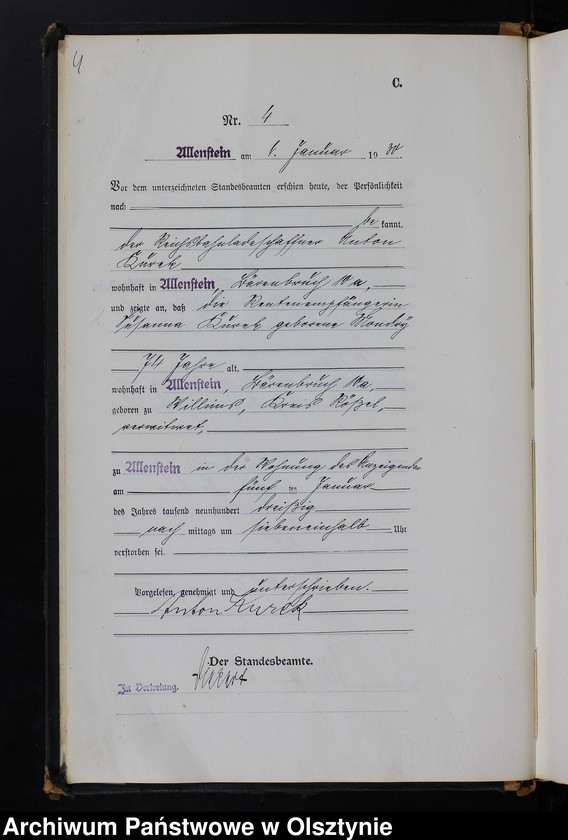 4
C.
Nr. 4
Allenstein am 6. Januar 1930.
Vor dem unterzeichneten Standesbeamten erschien heute, der Persönlichkeit
nach
be kannt,
der Reichsbahnladeschaffner Anton
Kurek
wohnhaft in Allenstein, Bärenbruch
und zeigte an, daß die Rentenempfängerin
Susanna Kurek geborene Mondry
74 Jahre alt,
wohnhaft in Allenstein, Bärenbruch
geboren zu Willims, Kreis Rößel,
verwitwet,
zu Allenstein in der Wohnung des Anzeigenden
am fünf ten Januar
des Jahres tausend neunhundert dreißig
nach mittags um siebeneinhalb Uhr
verstorben sei.
Vorgelesen, genehmigt und unterschrieben.
Anton Kurek
Der Standesbeamte.
In Vertretung.
Archiwum Państwowe w Olsztynie